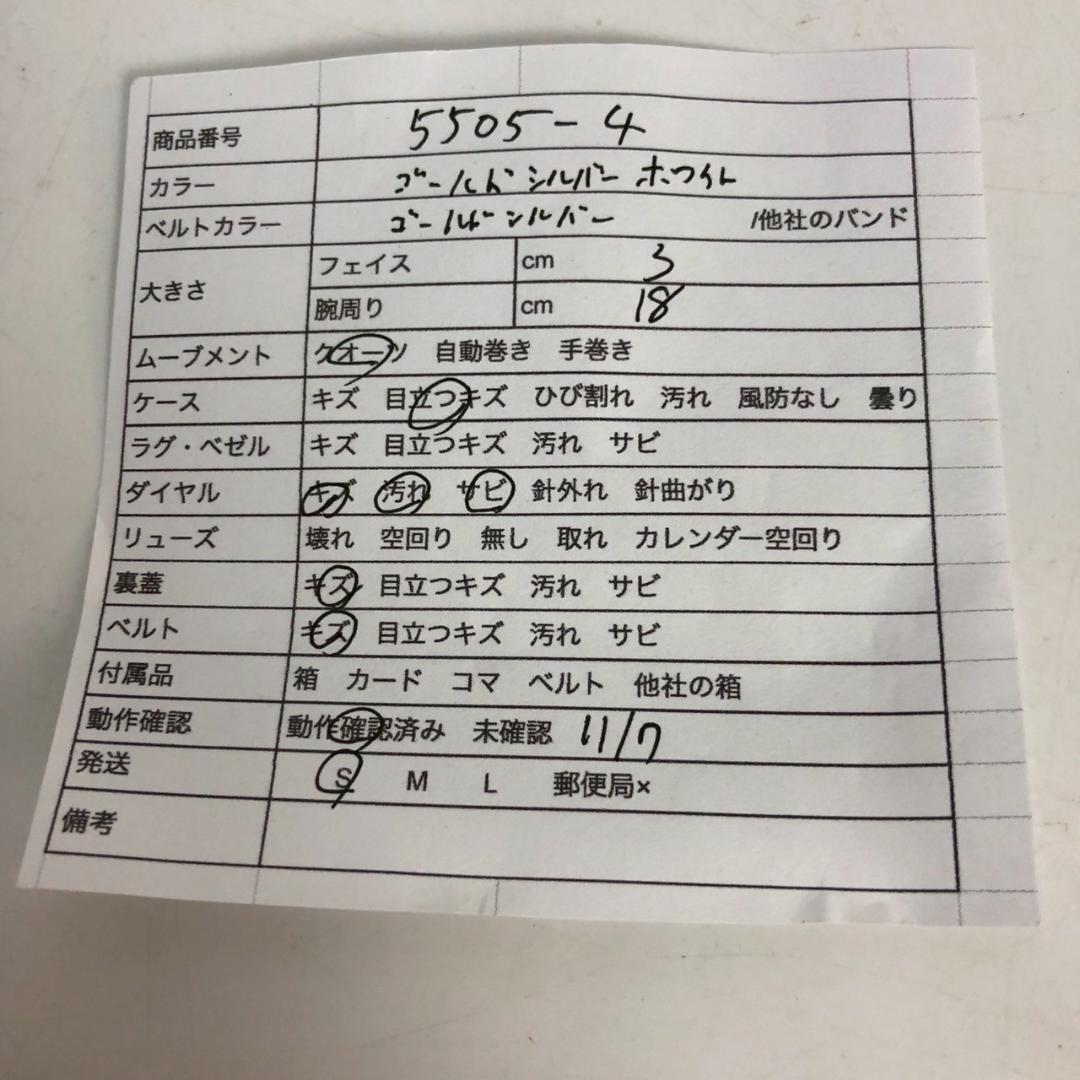 商品番号 5505-4
カラー ゴールド シルバー ホワイト
ベルトカラー ゴールド シルバー /他社のバンド
大きさ フェイス cm 3
腕周り cm 18
ムーブメント クオーツ 自動巻き 手巻き
ケース キズ 目立つキズ ひび割れ 汚れ 風防なし 曇り
ラグ・ベゼル キズ 目立つキズ 汚れ サビ
ダイヤル キズ 汚れ サビ 針外れ 針曲がり
リューズ 壊れ 空回り 無し 取れ カレンダー空回り
裏蓋 キズ 目立つキズ 汚れ サビ
ベルト キズ 目立つキズ 汚れ サビ
付属品 箱 カード コマ ベルト 他社の箱
動作確認 動作確認済み 未確認 11/7
発送 S M L 郵便局×
備考